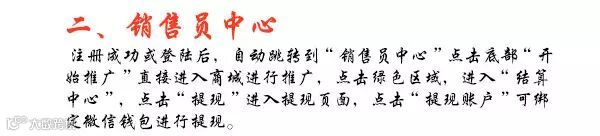 二、销售员中心
注册成功或登陆后，自动跳转到“销售员中心”点击底部“开
始推广”直接进入商城进行推广，点击绿色区域，进入“结算
中心”，点击“提现”进入提现页面，点击“提现账户”可绑
定微信钱包进行提现。